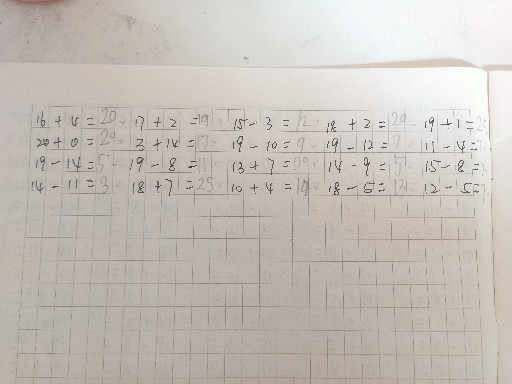 16 + 4 = 20 17 + 2 = 19 15 - 3 = 12 18 + 2 = 20 19 + 1 = 20
20 + 0 = 20 3 + 14 = 17 19 - 10 = 9 19 - 12 = 7 11 - 4 = 7
19 - 14 = 5 19 - 8 = 11 13 + 7 = 20 14 - 9 = 5 15 - 8 =
14 - 11 = 3 18 + 7 = 25 10 + 4 = 14 18 - 5 = 13 12 - 5 =